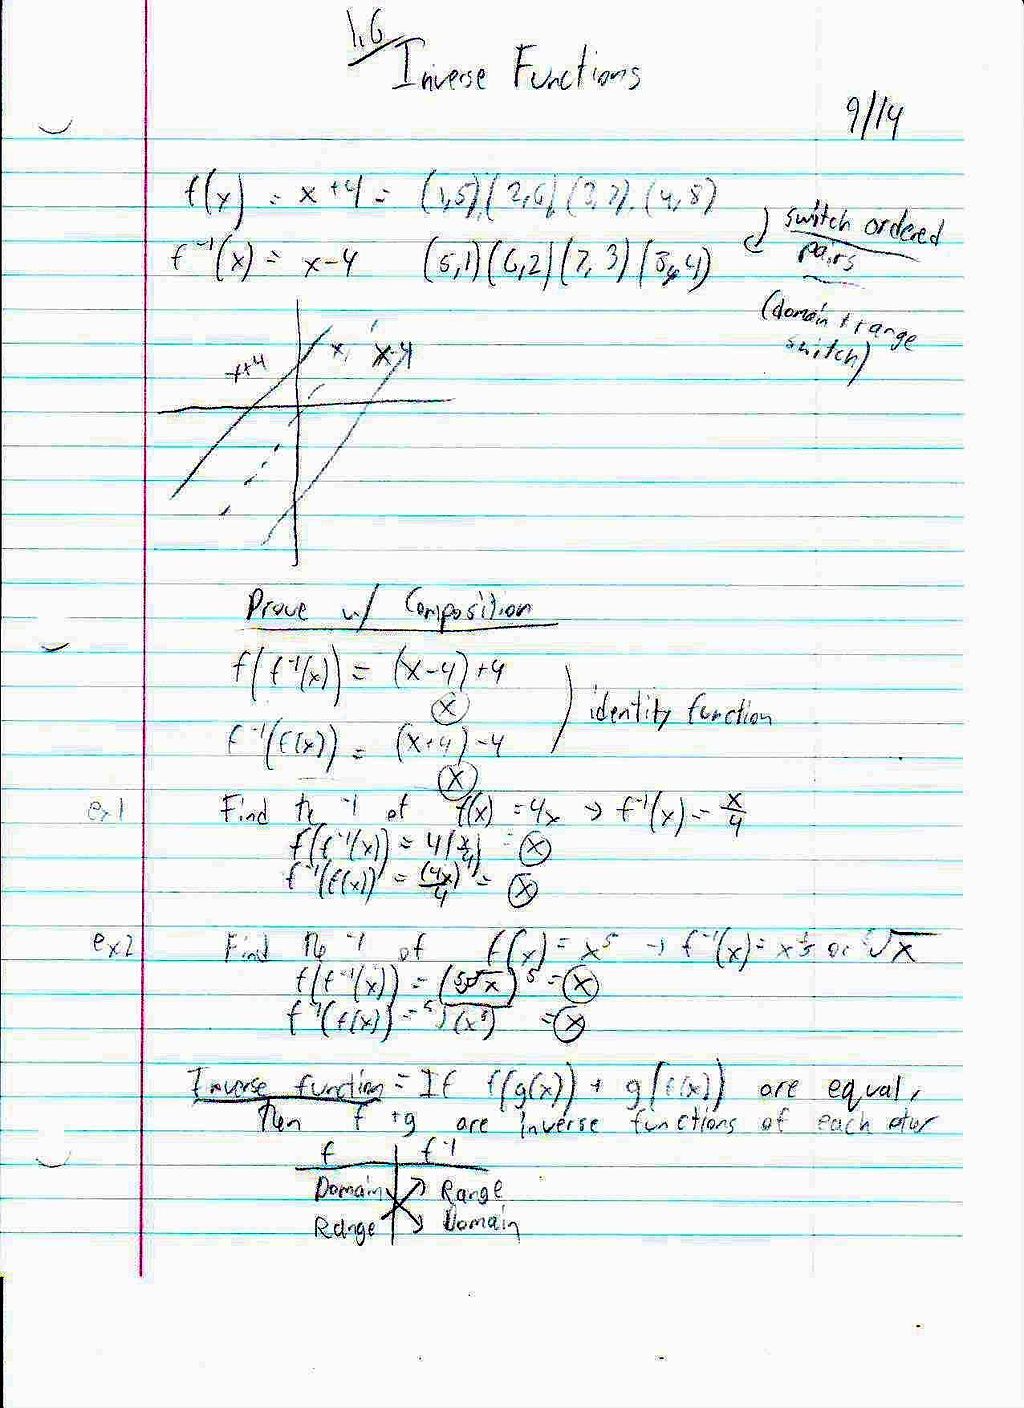 1.6
Inverse Functions
9/14
f(x) = x+4 = (1,5), (2,6), (3,7), (4,8)
f⁻¹(x) = x-4 (5,1)(6,2)(7,3)(8,4)
switch ordered
pairs
(domain + range
switch)
x+4 x x-4
Prove w/ Composition
f(f⁻¹(x)) = (x-4)+4
x
identity function
f⁻¹(f(x)) = (x+4)-4
x
ex1 Find the ⁻¹ of f(x) = 4x → f⁻¹(x) = x/4
f(f⁻¹(x)) = 4(x/4) = x
f⁻¹(f(x)) = (4x)/4 = x
ex2 Find the ⁻¹ of f(x) = x⁵ → f⁻¹(x) = x^1/5 or ⁵√x
f(f⁻¹(x)) = (⁵√x)⁵ = x
f⁻¹(f(x)) = ⁵√(x⁵) = x
Inverse function = If f(g(x)) + g(f(x)) are equal,
then f + g are inverse functions of each other
f f⁻¹
Domain Range
Range Domain